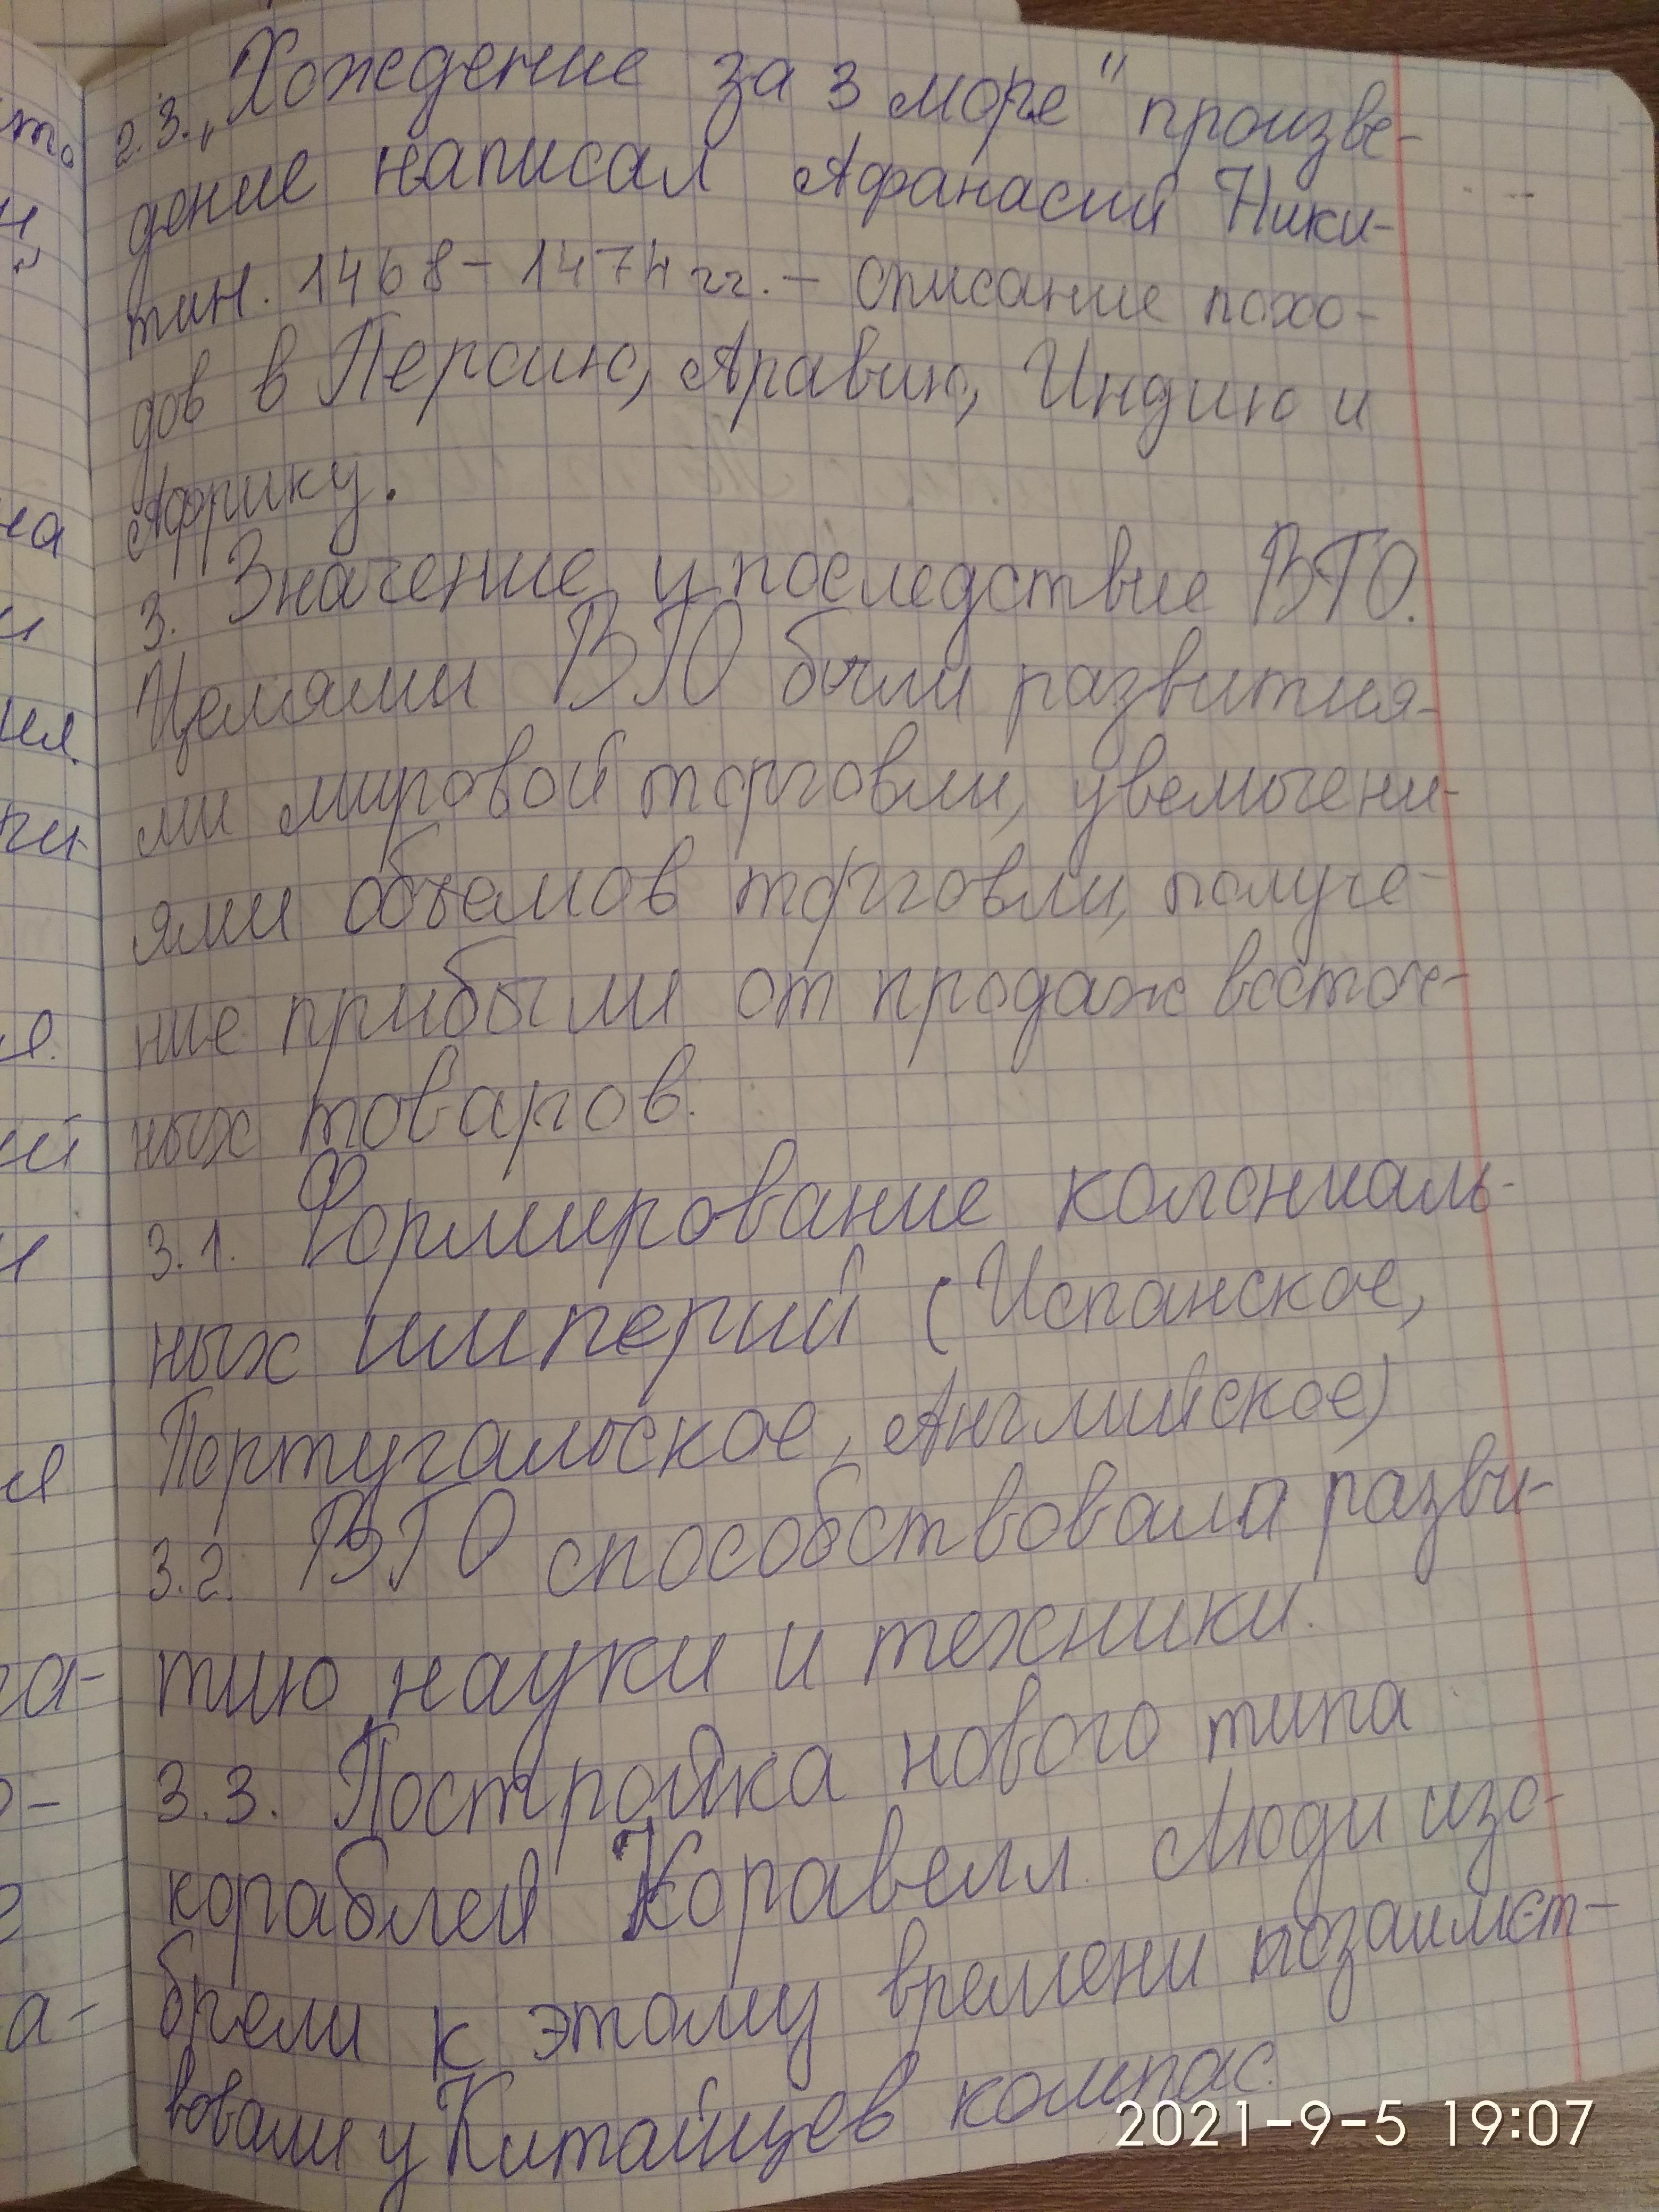 2.3. „Хождение за 3 море" произве-
дение написал Афанасий Ники-
тин. 1468-1474 гг. - описание похо-
дов в Персию, Аравию, Индию и
Африку.
3. Значение и последствие ВГО.
Целями ВГО были развития-
ми мировой торговли, увеличени-
ями объемов торговли, получе-
ние прибыли от продаж восточ-
ных товаров.
3.1. Формирование колониаль-
ных империй (Испанское,
Португальское, Английское)
3.2. ВГО способствовала разви-
тию науки и техники.
3.3. Постройка нового типа
кораблей Коравелл. Люди изо-
брели к этому времени позаимст-
вовали у Китайцев компас.
2021-9-5 19:07